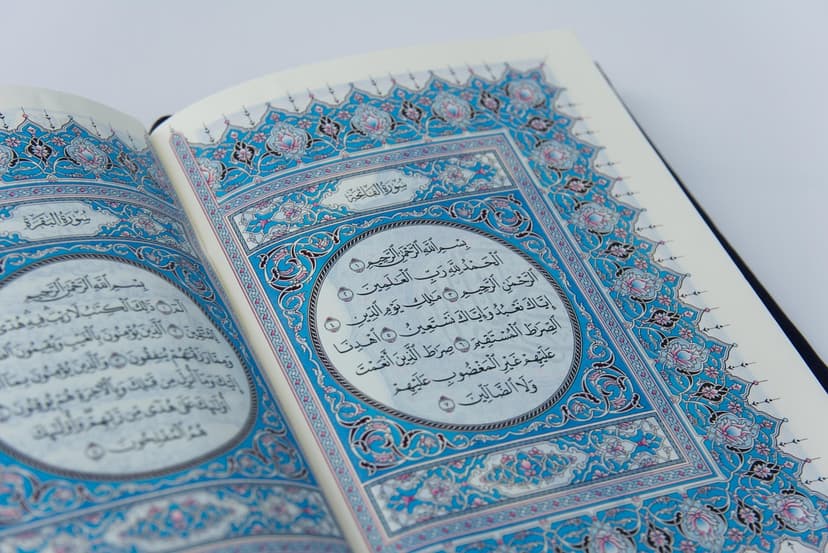 سُورَةُ الْفَاتِحَةِ
بِسْمِ اللَّهِ الرَّحْمَٰنِ الرَّحِيمِ ١
الْحَمْدُ لِلَّهِ رَبِّ الْعَالَمِينَ ٢
الرَّحْمَٰنِ الرَّحِيمِ ٣ مَالِكِ يَوْمِ الدِّينِ ٤
إِيَّاكَ نَعْبُدُ وَإِيَّاكَ نَسْتَعِينُ ٥ اهْدِنَا
الصِّرَاطَ الْمُسْتَقِيمَ ٦ صِرَاطَ الَّذِينَ أَنْعَمْتَ
عَلَيْهِمْ غَيْرِ الْمَغْضُوبِ عَلَيْهِمْ
وَلَا الضَّالِّينَ ٧
سُورَةُ الْبَقَرَةِ
بِسْمِ اللَّهِ الرَّحْمَٰنِ الرَّحِيمِ
الم ١ ذَٰلِكَ الْكِتَابُ لَا رَيْبَ فِيهِ هُدًى
لِلْمُتَّقِينَ ٢ الَّذِينَ يُؤْمِنُونَ بِالْغَيْبِ وَيُقِيمُونَ
وَمِمَّا رَزَقْنَاهُمْ يُنْفِقُونَ ٣ وَالَّذِينَ يُؤْمِنُونَ بِمَا
إِلَيْكَ وَمَا أُنْزِلَ مِنْ قَبْلِكَ وَبِالْآخِرَةِ هُمْ يُوقِنُونَ ٤
أُولَٰئِكَ عَلَىٰ هُدًى مِنْ رَبِّهِمْ وَأُولَٰئِكَ
هُمُ الْمُفْلِحُونَ ٥